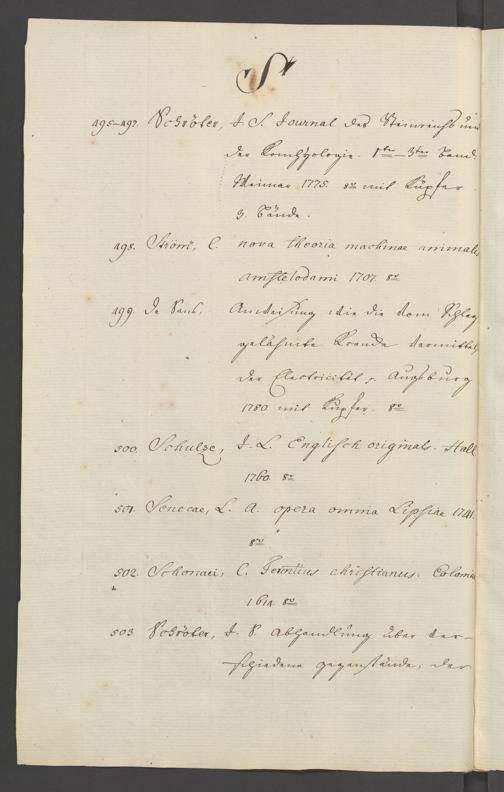 S
495–497. Schröter, J. S. Journal des Steinreichs und
der Konchyologie. 1ter–3ter Band.
Weimar 1775. 8vo mit Kupfer.
3. Bände.
498. Ström, C. nova theoria machinae animalis
amstelodami 1707. 8vo
499. De Sans, Anweisung wie die vom Schlag
gelähmte Kranke vermittels
der Electricität p. Augsburg
1780 mit Kupfer. 8vo
500. Schulze, J. L. Englisch originals. Hall
1760 8vo
501. Senecae, L. A. opera omnia Lipsiae 1741.
8vo
502. Schonaei, C. Terentius christianus. Coloniae
1614. 8vo
503. Schröter, J. S. Abhandlung über ver-
schiedene gegenstände, der